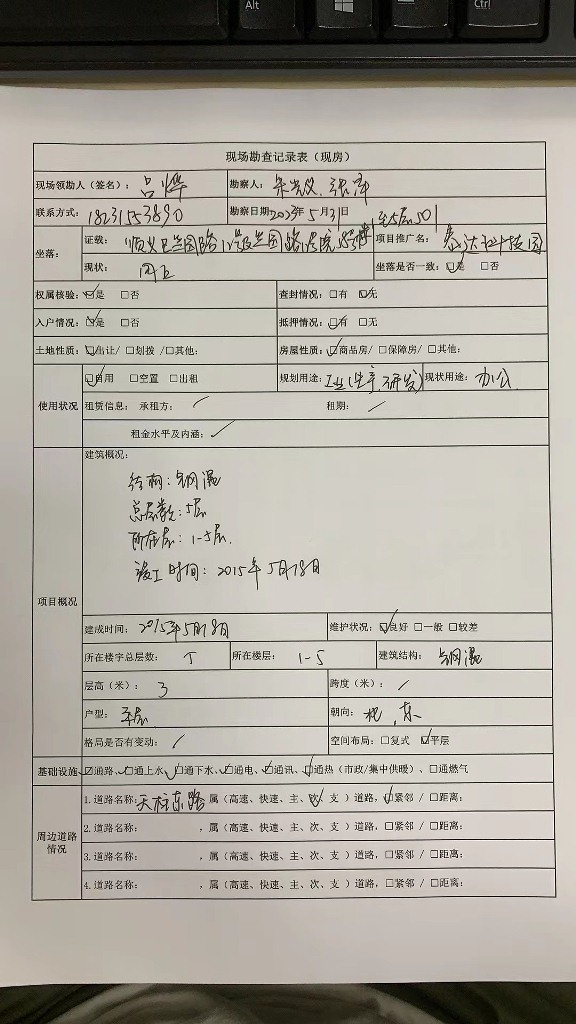 Alt
Ctrl
现场勘查记录表（现房）
现场领勘人（签名）： 吕烨 勘察人：
联系方式： 18231553890 勘察日期2023年5月31日
坐落： 证载： 项目推广名： 泰达科技园
至5层501
现状： 同上 坐落是否一致：☑是 □否
权属核验：☑是 □否 查封情况：□有 ☑无
入户情况：☑是 □否 抵押情况：☑有 □无
土地性质：☑出让/ □划拨 /□其他： 房屋性质：☑商品房/ □保障房/ □其他：
使用状况 ☑自用 □空置 □出租 规划用途：工业(生产、研发) 现状用途：办公
租赁信息： 承租方： / 租期： /
租金水平及内涵： /
项目概况 建筑概况：
结构：钢混
总层数：5层
所在层：1-5层.
竣工时间：2015年5月18日
建成时间： 2015年5月18日 维护状况：☑良好 □一般 □较差
所在楼宇总层数： 5 所在楼层： 1-5 建筑结构： 钢混
层高（米）： 3 跨度（米）： /
户型： 平层 朝向： 北、东
格局是否有变动： / 空间布局：□复式 ☑平层
基础设施 ☑通路、☑通上水、☑通下水、☑通电、☑通讯、☑通热（市政/集中供暖）、□通燃气
周边道路情况 1.道路名称：天柱东路 ，属（高速、快速、主、次、支 ）道路，☑紧邻 / □距离：
2.道路名称： ，属（高速、快速、主、次、支 ）道路，□紧邻 / □距离：
3.道路名称： ，属（高速、快速、主、次、支 ）道路，□紧邻 / □距离：
4.道路名称： ，属（高速、快速、主、次、支 ）道路，□紧邻 / □距离：